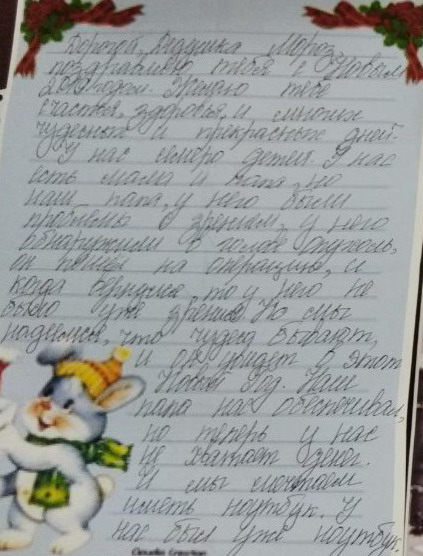 Дорогой, Дедушка Мороз,
поздравляю тебя с Новым
годом. Желаю тебе
счастья, здоровья, и многих
чудесных и прекрасных дней.
У нас семеро детей. У нас
есть мама и папа, но
наш папа, у него были
проблемы с зрением, у него
обнаружили в голове опухоль,
он пошёл на операцию, и
когда вернулся то у него не
было уже зрение. Но мы
надеимся, что чудеса бывают,
и он увидет в этот
Новый Год. Наш
папа нас обеспечивал,
но теперь у нас
не хватает денег.
И мы мечтаем
иметь ноутбук. У
нас был уже ноутбук,